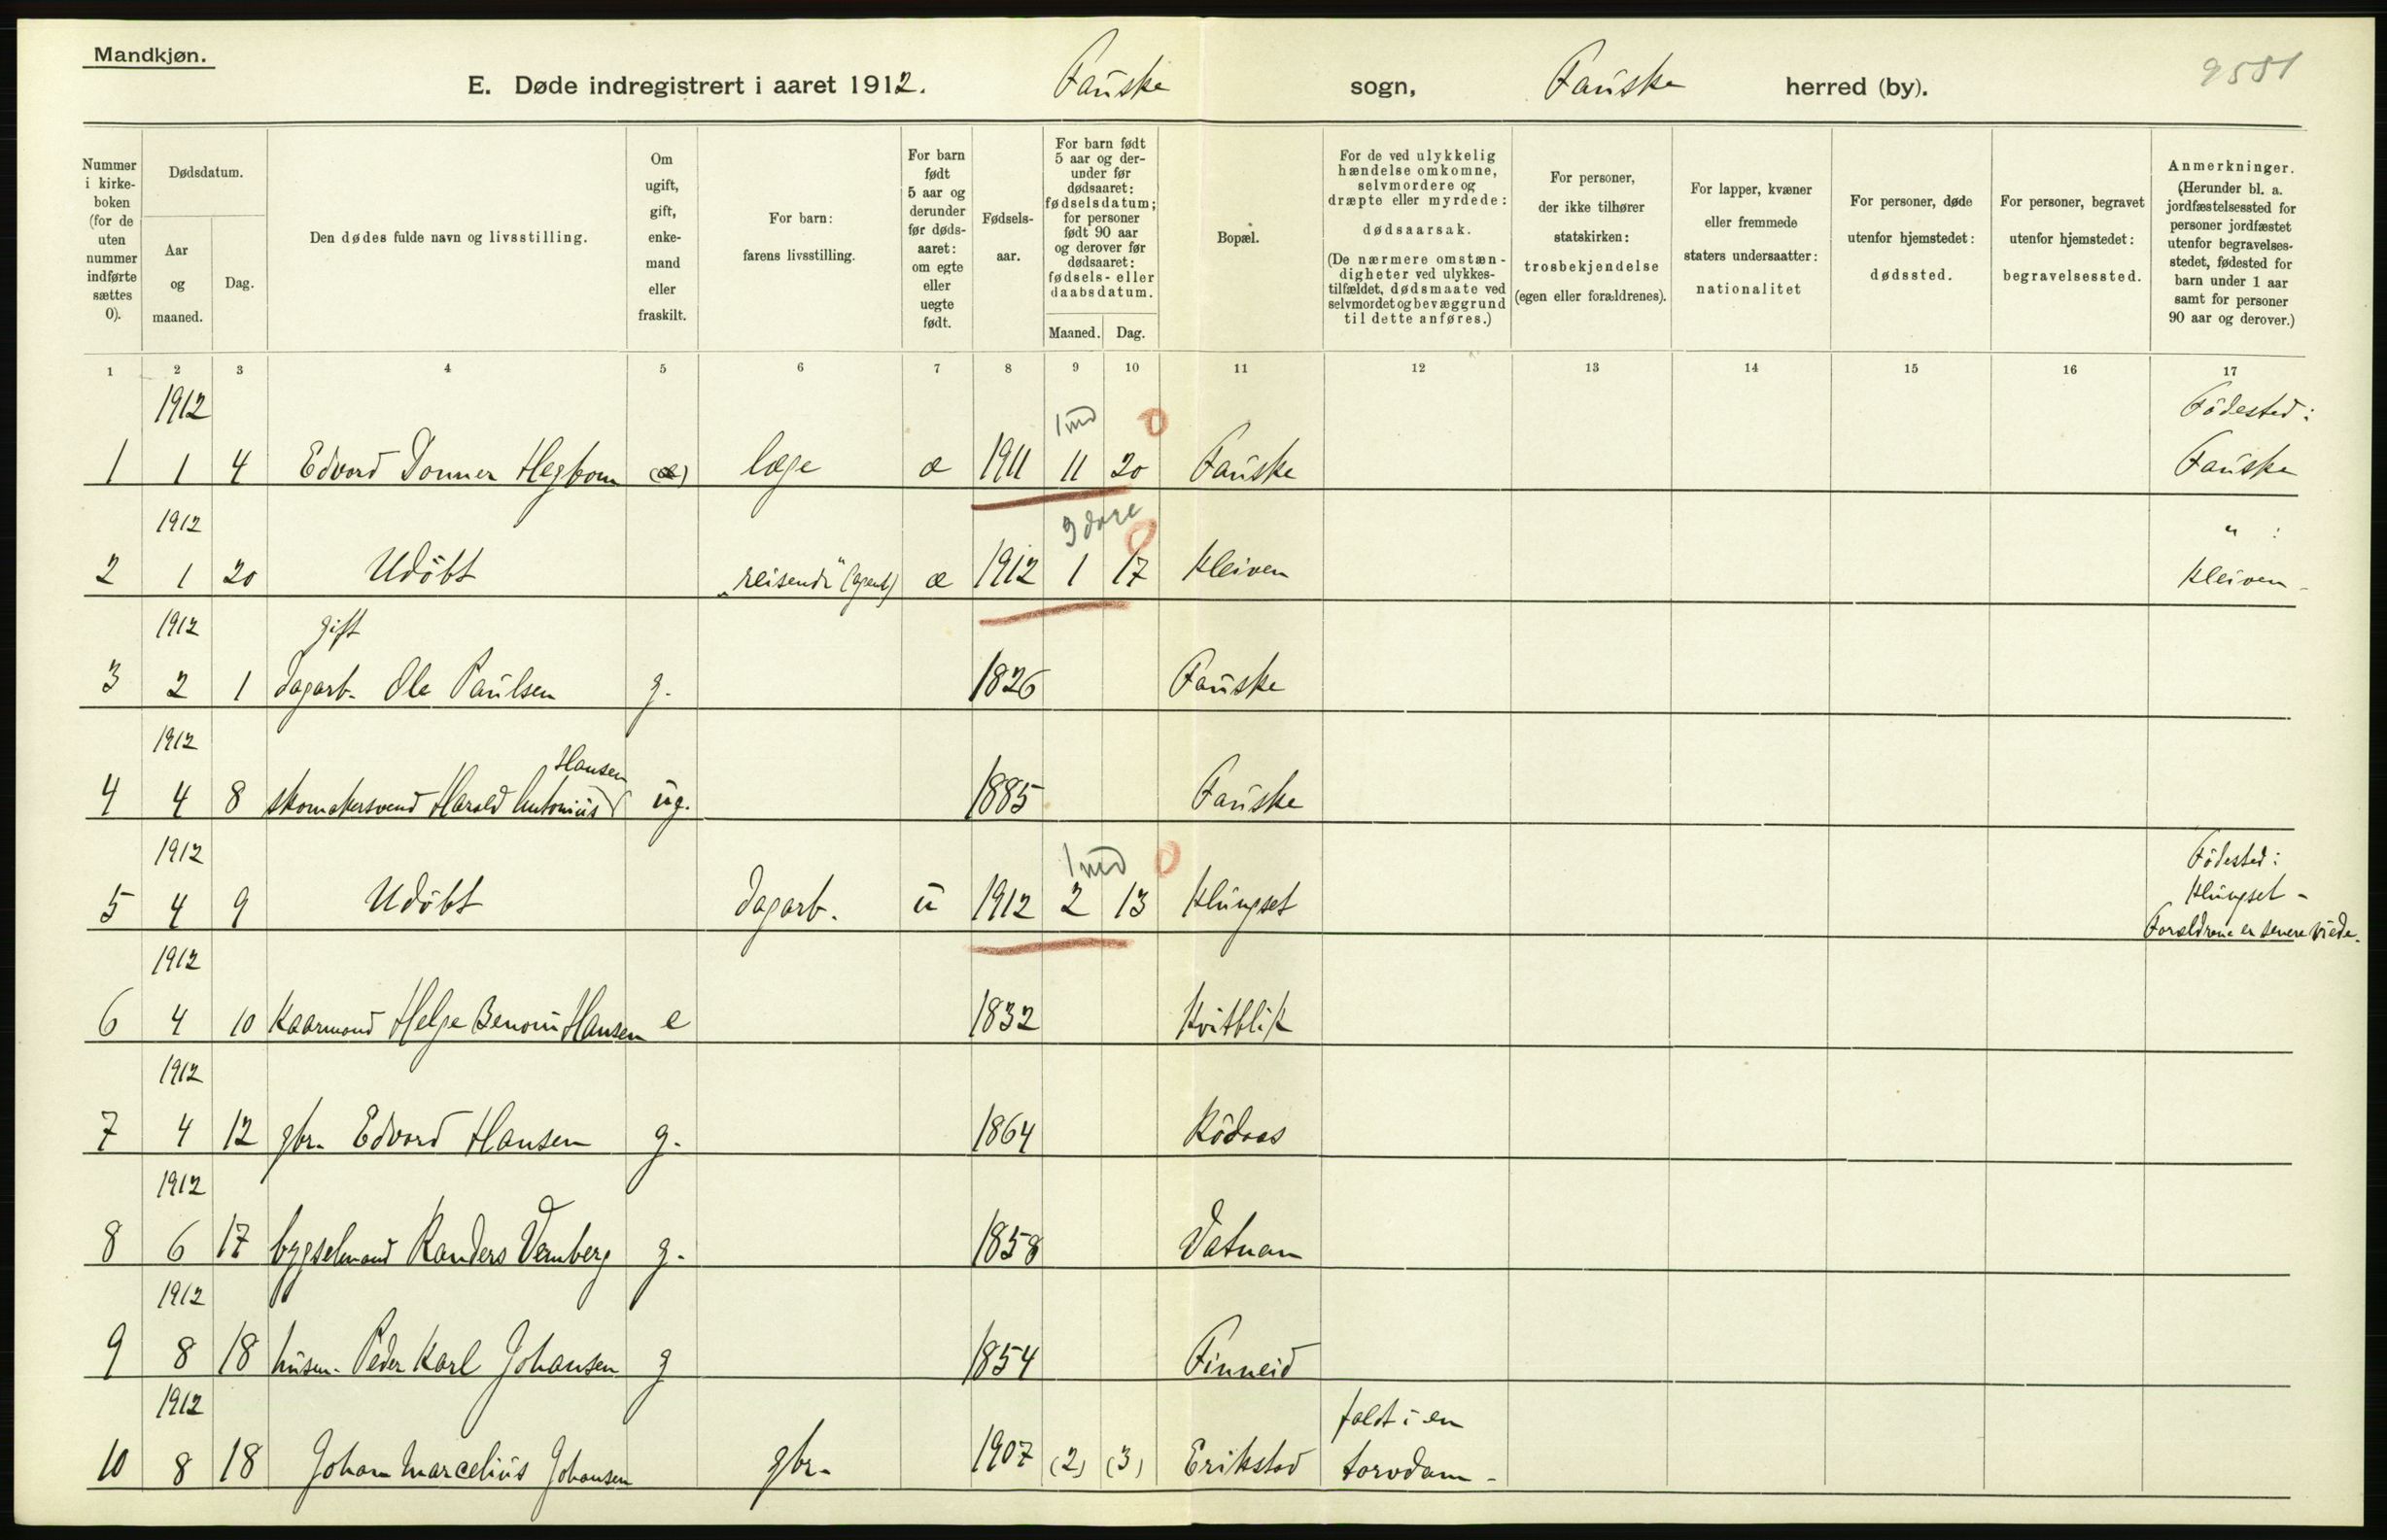 Mandkjøn.
E. Døde indregistrert i aaret 1912. Fauske sogn, Fauske herred (by). 9551
Nummer i kirke-boken (for de uten nummer indførte sættes 0).
Dødsdatum.
Aar og maaned.
Dag.
Den dødes fulde navn og livsstilling.
Om ugift, gift, enke-mand eller fraskilt.
For barn: farens livsstilling.
For barn født 5 aar og derunder før døds-aaret: om egte eller uegte født.
Fødsels-aar.
For barn født 5 aar og der-under før dødsaaret: fødselsdatum; for personer født 90 aar og derover før dødsaaret: fødsels- eller daabsdatum.
Maaned. Dag.
Bopæl.
For de ved ulykkelig hændelse omkomne, selvmordere og dræpte eller myrdede: dødsaarsak. (De nærmere omstæn-digheter ved ulykkes-tilfældet, dødsmaate ved selvmordet og bevæggrund til dette anføres.)
For personer, der ikke tilhører statskirken: trosbekjendelse (egen eller forældrenes).
For lapper, kvæner eller fremmede staters undersaatter: nationalitet
For personer, døde utenfor hjemstedet: dødssted.
For personer, begravet utenfor hjemstedet: begravelsessted.
Anmerkninger. (Herunder bl. a. jordfæstelsessted for personer jordfæstet utenfor begravelses-stedet, fødested for barn under 1 aar samt for personer 90 aar og derover.)
1 2 3 4 5 6 7 8 9 10 11 12 13 14 15 16 17
1912 1 md 0 Födested:
1 1 4 Edvard Donner Hegbom (æ) læge æ 1911 11 20 Fauske Fauske
1912 3 dage 0 " :
2 1 20 Udöbt "reisende" (agent) æ 1912 1 17 Kleiven Kleiven
1912 gift
3 2 1 dagarb. Ole Paulsen g. 1826 Fauske
1912 Hansen
4 4 8 skomakersvend Harald Antonius ug. 1885 Fauske
1912 1 md 0 Födested:
5 4 9 Udöbt dagarb. u 1912 2 13 Klungset Klungset -
Forældrene er senere viede.
1912
6 4 10 Kaarmand Helge Benoni Hansen e 1832 Kvitblik
1912
7 4 12 gbr. Edvard Hansen g. 1864 Rödaas
1912
8 6 17 bygselmand Randers Vernberg g. 1858 Vatnan
1912
9 8 18 husm. Peder Karl Johansen g 1854 Finneid
1912 faldt i en
10 8 18 Johan Marcelius Johansen gbr. 1907 (2) (3) Erikstad torvdam -